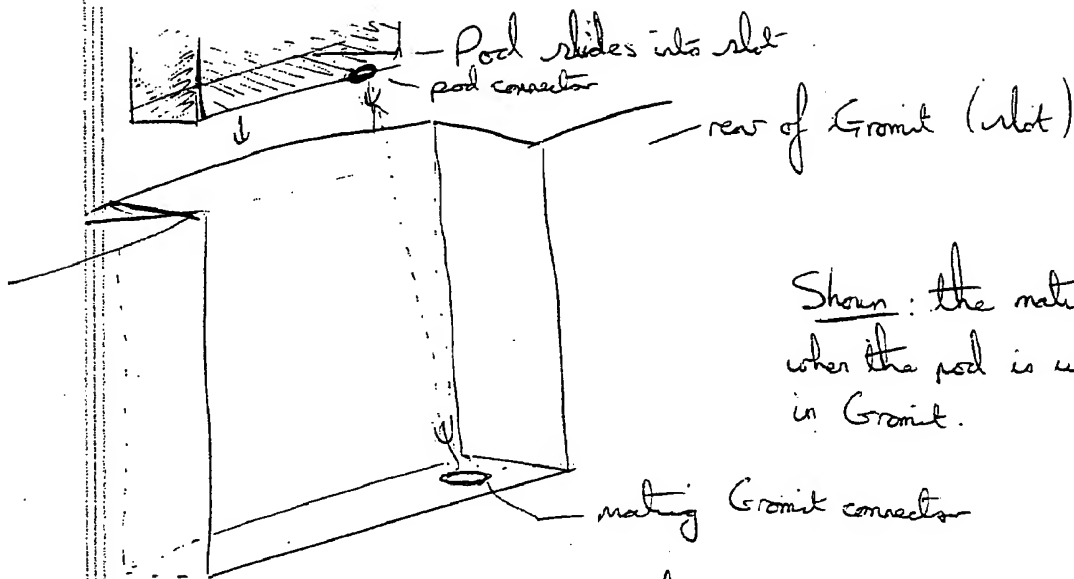 Pod slides into slot
pod connector
rear of Gromit (slot)
Shown: the
when the pod is
in Gromit.
mating Gromit connector